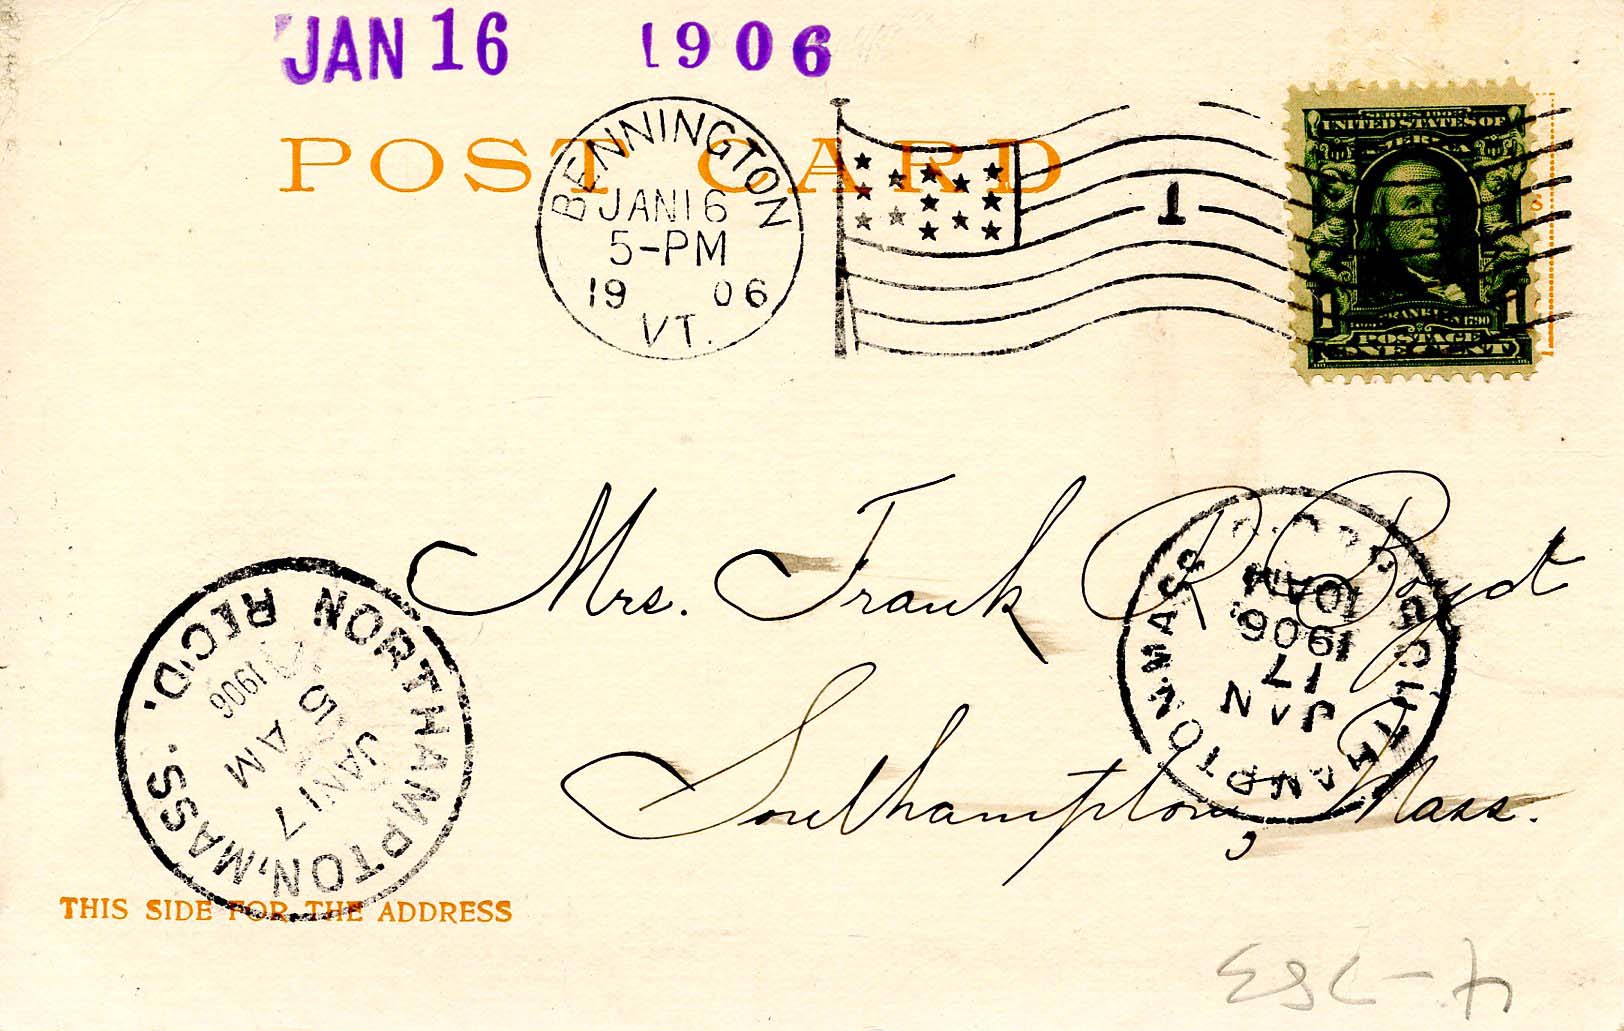 JAN 16 1906
POST CARD
BENNINGTON
JAN 16
5-PM
19 06
VT.
1
UNITED STATES OF
AMERICA
FRANKLIN 1790
1 1
POSTAGE
ONE CENT
Mrs. Frank R. Boyd
Southampton, Mass.
SOUTHAMPTON, MASS.
JAN
17
1906
10AM
REC'D.
NORTHAMPTON, MASS.
REC'D.
JAN 17
5 AM
1906
THIS SIDE FOR THE ADDRESS